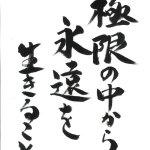 極限の中から
永遠を
生きること